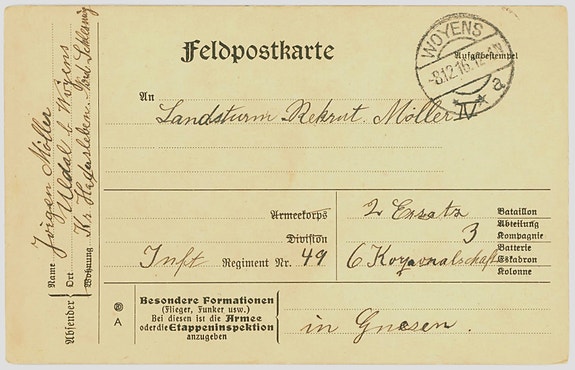 Feldpostkarte
WOYENS
-8.12.16. 12-1N
a
Aufgabestempel
An
Landsturm Rekrut. Möller IV
Armeekorps
Division
Inft Regiment Nr. 49
2 Ersatz Bataillon
Abteilung
3 Kompagnie
Batterie
6 Korporalschaft Eskadron
Kolonne
A
Besondere Formationen
(Flieger, Funker usw.)
Bei diesen ist die Armee
oder die Etappeninspektion
anzugeben
in Gnesen.
Absender
Name Jörgen Möller
Ort Uldal b. Woyens
Wohnung Kr Hadersleben. Nord. Schleswig